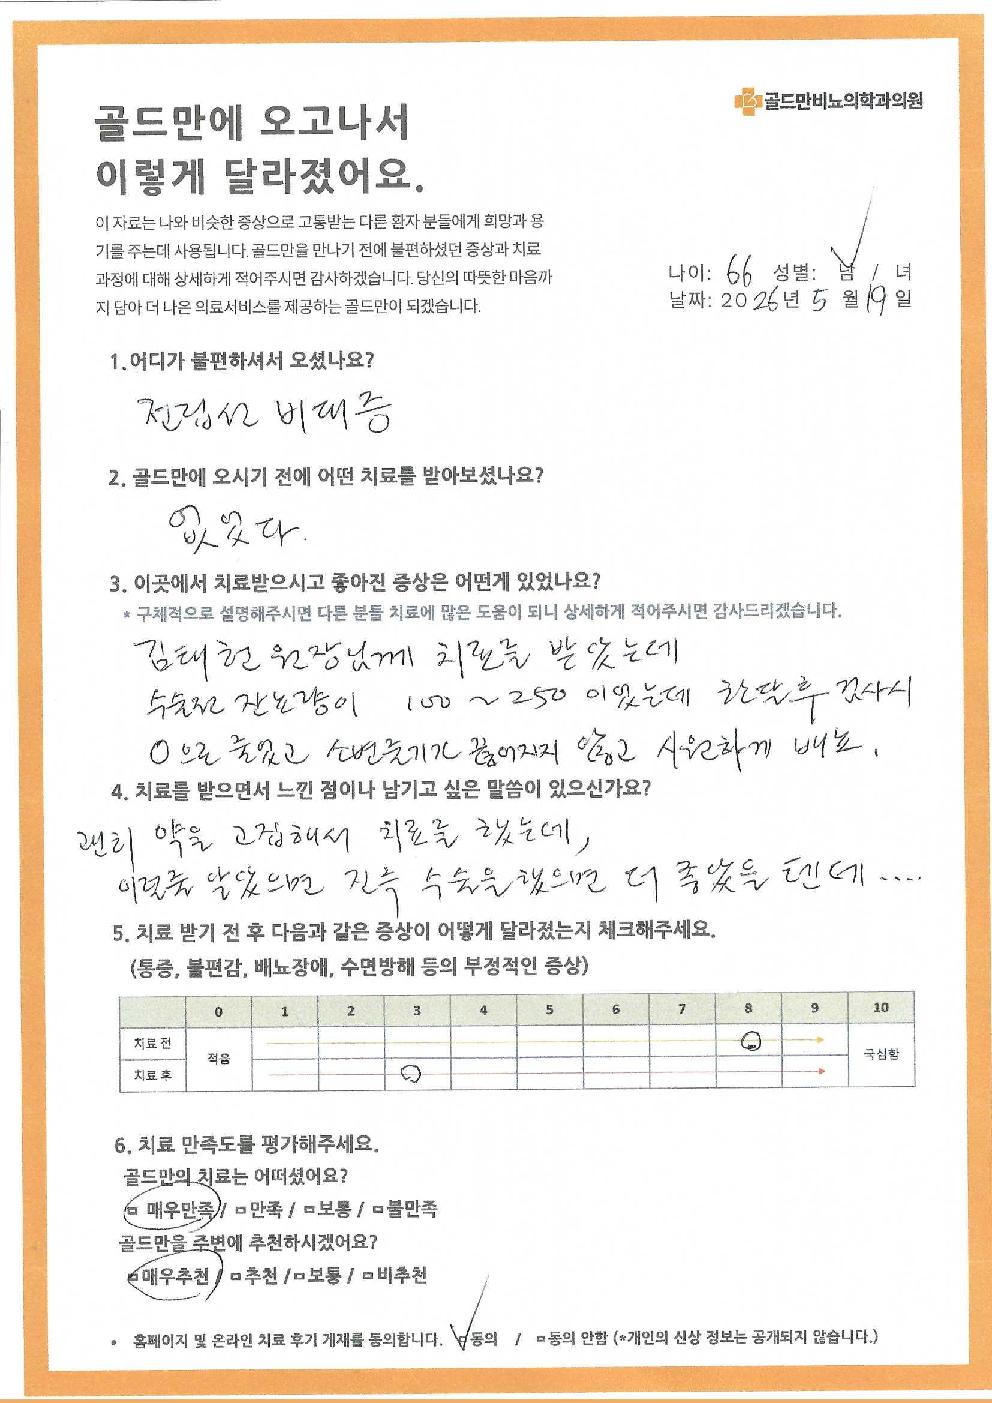 골드만비뇨의학과의원
골드만에 오고나서
이렇게 달라졌어요.
이 자료는 나와 비슷한 증상으로 고통받는 다른 환자 분들에게 희망과 용
기를 주는데 사용됩니다. 골드만을 만나기 전에 불편하셨던 증상과 치료
과정에 대해 상세하게 적어주시면 감사하겠습니다. 당신의 따뜻한 마음까
지 담아 더 나은 의료서비스를 제공하는 골드만이 되겠습니다.
나이: 66 성별: 남 / 녀
날짜: 2026년 5월 19일
1. 어디가 불편하셔서 오셨나요?
전립선 비대증
2. 골드만에 오시기 전에 어떤 치료를 받아보셨나요?
없었다.
3. 이곳에서 치료받으시고 좋아진 증상은 어떤게 있었나요?
* 구체적으로 설명해주시면 다른 분들 치료에 많은 도움이 되니 상세하게 적어주시면 감사드리겠습니다.
김태헌 원장님께 치료를 받았는데
수술전 잔뇨량이 100 ~ 250 이었는데 한달후 검사시
0으로 줄었고 소변줄기가 끊어지지 않고 시원하게 배뇨.
4. 치료를 받으면서 느낀 점이나 남기고 싶은 말씀이 있으신가요?
괜히 약을 고집해서 치료를 했는데,
이럴줄 알았으면 진즉 수술을 했으면 더 좋았을 텐데 ....
5. 치료 받기 전 후 다음과 같은 증상이 어떻게 달라졌는지 체크해주세요.
(통증, 불편감, 배뇨장애, 수면방해 등의 부정적인 증상)
0 1 2 3 4 5 6 7 8 9 10
치료 전
적음
극심함
치료 후
6. 치료 만족도를 평가해주세요.
골드만의 치료는 어떠셨어요?
□ 매우만족 / □ 만족 / □ 보통 / □ 불만족
골드만을 주변에 추천하시겠어요?
□ 매우추천 / □ 추천 / □ 보통 / □ 비추천
• 홈페이지 및 온라인 치료 후기 게재를 동의합니다. □ 동의 / □ 동의 안함 (*개인의 신상 정보는 공개되지 않습니다.)